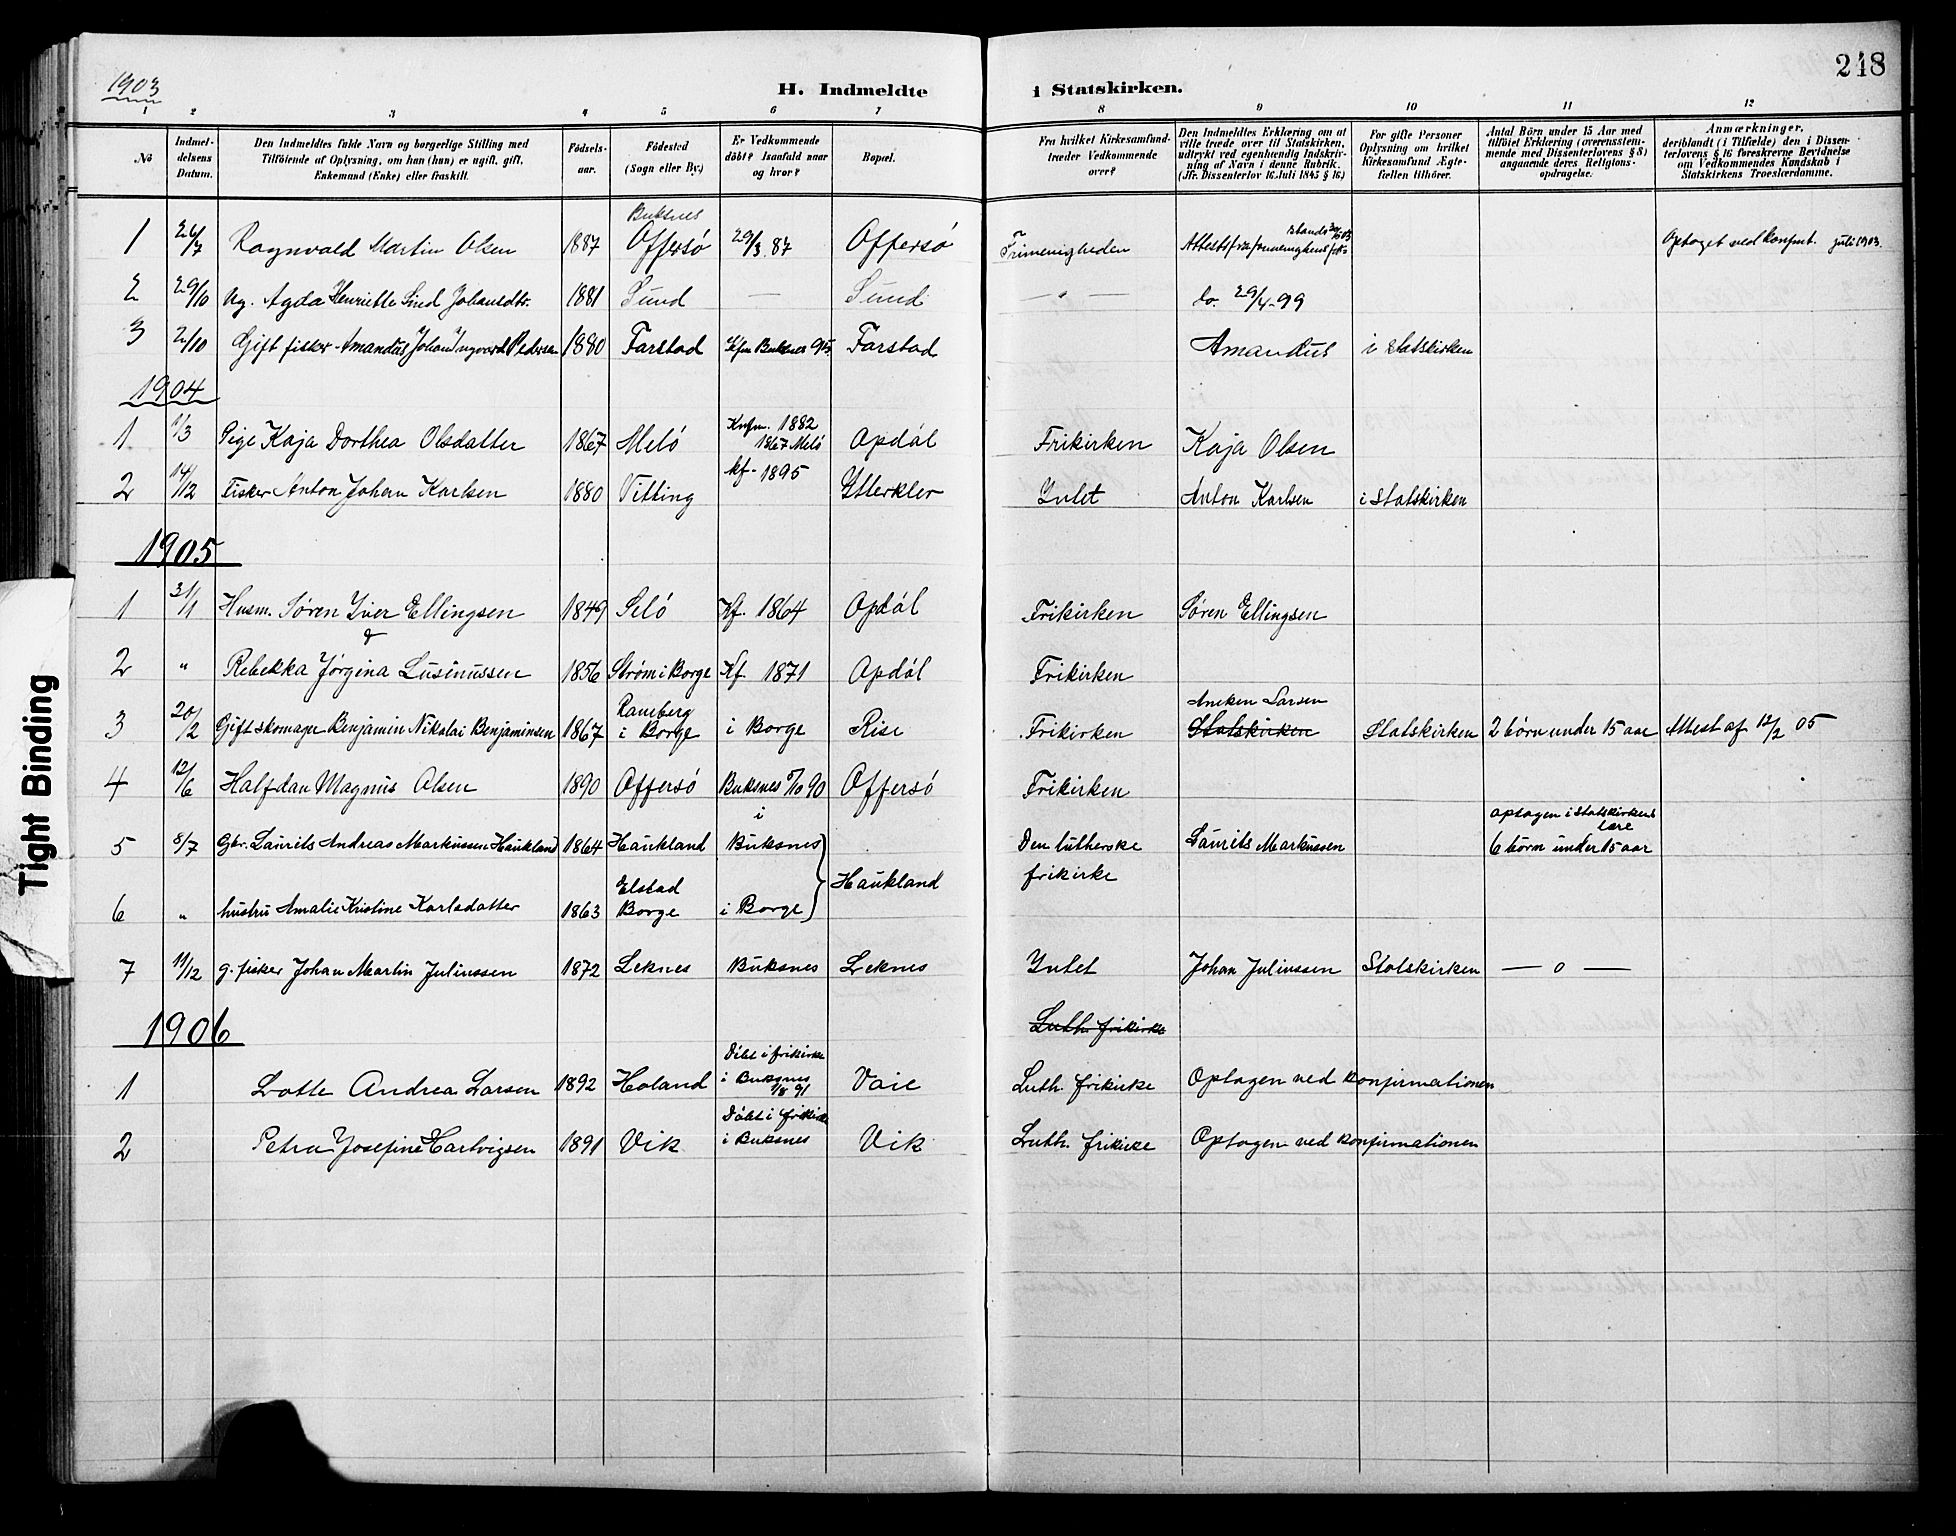 248
1903
H. Indmeldte i Statskirken.
1 2 3 4 5 6 7 8 9 10 11 12
No
Indmeldelsens Datum.
Den Indmeldtes fulde Navn og borgerlige Stilling med
Tilföiende af Oplysning, om han (hun) er ugift, gift,
Enkemand (Enke) eller fraskilt.
Födsels-
aar.
Födested
(Sogn eller By.)
Er Vedkommende
döbt? Isaafald naar
og hvor?
Bopæl.
Fra hvilket Kirkesamfund-
træder Vedkommende
over?
Den Indmeldtes Erklæring om at
ville træde over til Statskirken,
udtrykt ved egenhændig Indskriv-
ning af Navn i denne Rubrik.
(Jfr. Dissenterlov 16. Juli 1845 § 16)
For gifte Personer
Oplysning om hvilket
Kirkesamfund Ægte-
fællen tilhörer.
Antal Börn under 15 Aar med
tilföiet Erklæring (overensstem-
mende med Dissenterlovens § 8)
angaaende deres Religions-
opdragelse.
Anmærkninger,
deriblandt (i Tilfælde) den i Dissen-
terlovens § 16 foreskrevne Bevidnelse
om Vedkommendes Kundskab i
Statskirkens Troeslærdomme.
1 26/7 Ragnvald Martin Olsen 1887 Buksnes Offersö 29/3 87 Offersö Frimenigheden Optaget ved Konfmt. juli 1903.
2 29/10 Ug. Agda Henriette Sind Johansdtr. 1881 Sund — Sund — " — do. 29/4-99
3 2/10 Gift fisker Amandus Johan Ingvard Pedersen 1880 Farstad Buksnes 95 Farstad Amandus i Statskirken
1904
1 1/3 Pige Kaja Dorthea Olsdatter 1867 Melö Knfm. 1882 1867 Melö Opdöl Frikirken Kaja Olsen
2 14/12 Fisker Anton Johan Karlsen 1880 Vitting kf. 1895 Ytterklev Intet Anton Karlsen i Statskirken
1905
1 31/1 Husm. Sören Iver Ellingsen 1849 Selö Kf. 1864 Opdöl Frikirken Sören Ellingsen
2 " Rebekka Jörgina Lusinussen 1856 Ström i Borge Kf. 1871 Opdöl Frikirken
3 20/2 Gift skomager Benjamin Nikolai Benjaminsen 1867 Ramberg i Borge i Borge Rise Frikirken Aneken Larsen Statskirken Statskirken 2 börn under 15 aar Attest af 12/2 05
4 12/6 Halfdan Magnus Olsen 1890 Offersö Buksnes 5/10 90 Offersö Frikirken
5 8/7 Gbr. Laurits Andreas Markussen Haukland 1864 Haukland i Buksnes Haukland Den lutherske frikirke Laurits Markussen optagen i Statskirkens lære 6 börn under 15 aar
6 " hustru Amalie Kristine Karlsdatter 1863 Elstad Borge i Borge
7 11/12 g. fisker Johan Martin Juliussen 1872 Leknes Buksnes Leknes Intet Johan Juliussen Statskirken — o —
1906
Luth. frikirke
1 Lotte Andrea Larsen 1892 Holand Döbt i frikirke i Buksnes 1/8 91 Vaie Luth. frikirke Optagen ved konfirmationen
2 Petra Josefine Hartvigsen 1891 Vik Döbt i frikirke i Buksnes Vik Luth. frikirke Optagen ved konfirmationen
Tight Binding